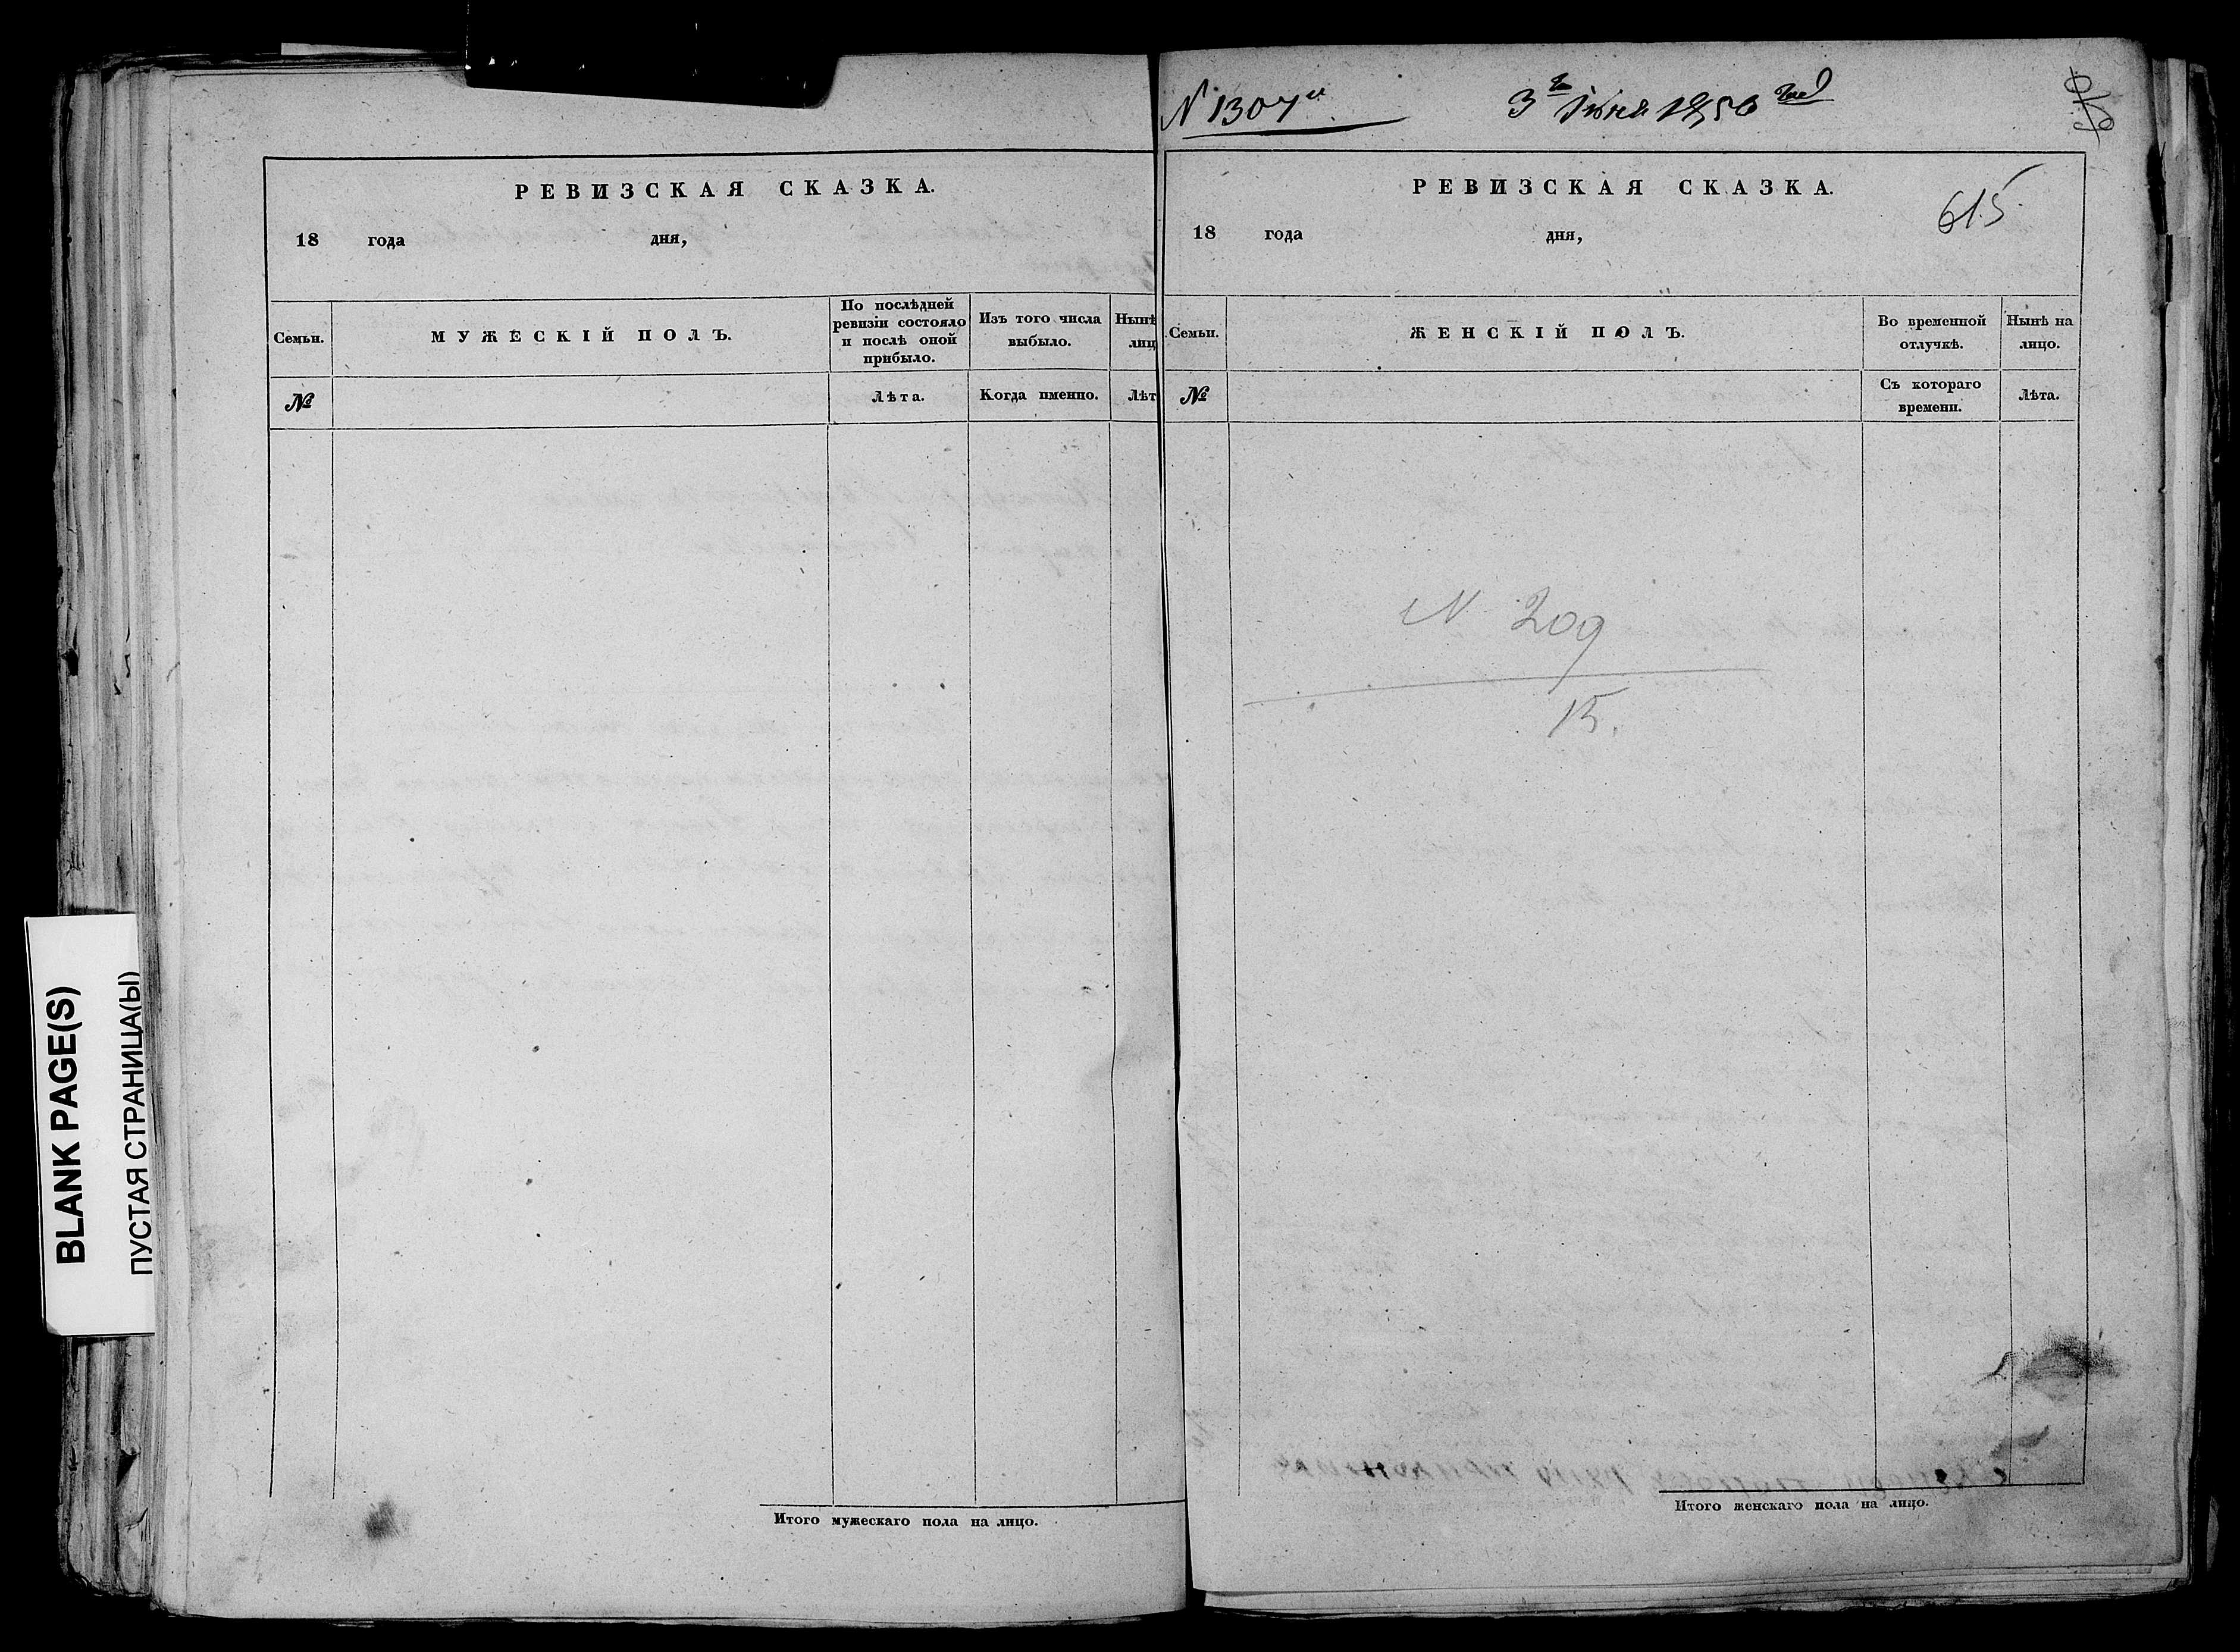 BLANK PAGE(S)
ПУСТАЯ СТРАНИЦА(Ы)
РЕВИЗСКАЯ СКАЗКА.
18 года дня,
Семьи.
МУЖЕСКІЙ ПОЛЪ.
По послѣдней
ревизіи состояло
и послѣ оной
прибыло.
Изъ того числа
выбыло.
Нынѣ
лиц
№
Лѣта.
Когда именно.
Лѣт
Итого мужескаго пола на лицо.
N 1307
3 Іюня 1856
РЕВИЗСКАЯ СКАЗКА.
615
18 года дня,
Семьи.
ЖЕНСКІЙ ПОЛЪ.
Во временной
отлучкѣ.
Нынѣ на
лицо.
№
Съ котораго
времени.
Лѣта.
N 209
15.
Итого женскаго пола на лицо.